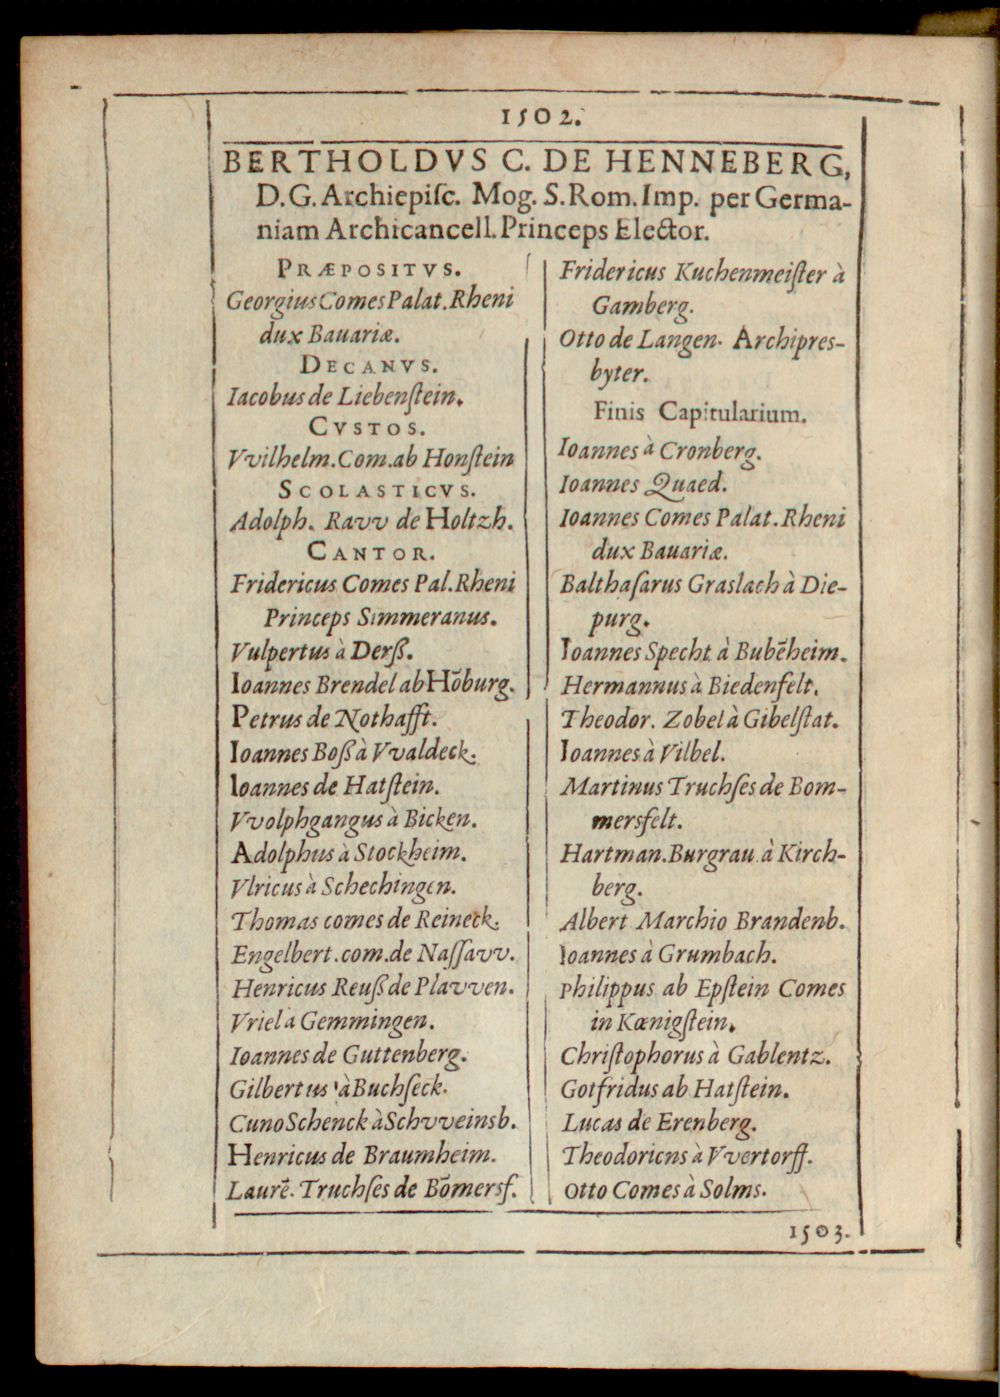 1502.
BERTHOLDVS C. DE HENNEBERG,
D.G. Archiepiſc. Mog. S. Rom. Imp. per Germa-
niam Archicancell. Princeps Elector.
PRÆPOSITVS.
Georgius Comes Palat. Rheni
dux Bauariæ.
DECANVS.
Iacobus de Liebenſtein.
CVSTOS.
Vvilhelm. Com. ab Honſtein
SCOLASTICVS.
Adolph. Ravv de Holtzh.
CANTOR.
Fridericus Comes Pal. Rheni
Princeps Simmeranus.
Vulpertus à Derß.
Ioannes Brendel ab Hōburg.
Petrus de Nothafft.
Ioannes Boß à Vvaldeck.
Ioannes de Hatſtein.
Vvolphgangus à Bicken.
Adolphus à Stockheim.
Vlricus à Schechingen.
Thomas comes de Reineck.
Engelbert. com. de Naſſavv.
Henricus Reuß de Plavven.
Vriel a Gemmingen.
Ioannes de Guttenberg.
Gilbertus à Buchſeck.
Cuno Schenck à Schvveinsb.
Henricus de Braumheim.
Laurē. Truchſes de Bōmersf.
Fridericus Kuchenmeiſter à
Gamberg.
Otto de Langen. Archipres-
byter.
Finis Capitularium.
Ioannes à Cronberg.
Ioannes Quaed.
Ioannes Comes Palat. Rheni
dux Bauariæ.
Balthaſarus Graslach à Die-
purg.
Ioannes Specht à Bubēheim.
Hermannus à Biedenfelt.
Theodor. Zobel à Gibelſtat.
Ioannes à Vilbel.
Martinus Truchſes de Bom-
mersfelt.
Hartman. Burgrau. à Kirch-
berg.
Albert Marchio Brandenb.
Ioannes à Grumbach.
Philippus ab Epſtein Comes
in Kœnigſtein.
Chriſtophorus à Gablentz.
Gotfridus ab Hatſtein.
Lucas de Erenberg.
Theodoricns à Vvertorff.
Otto Comes à Solms.
1503.